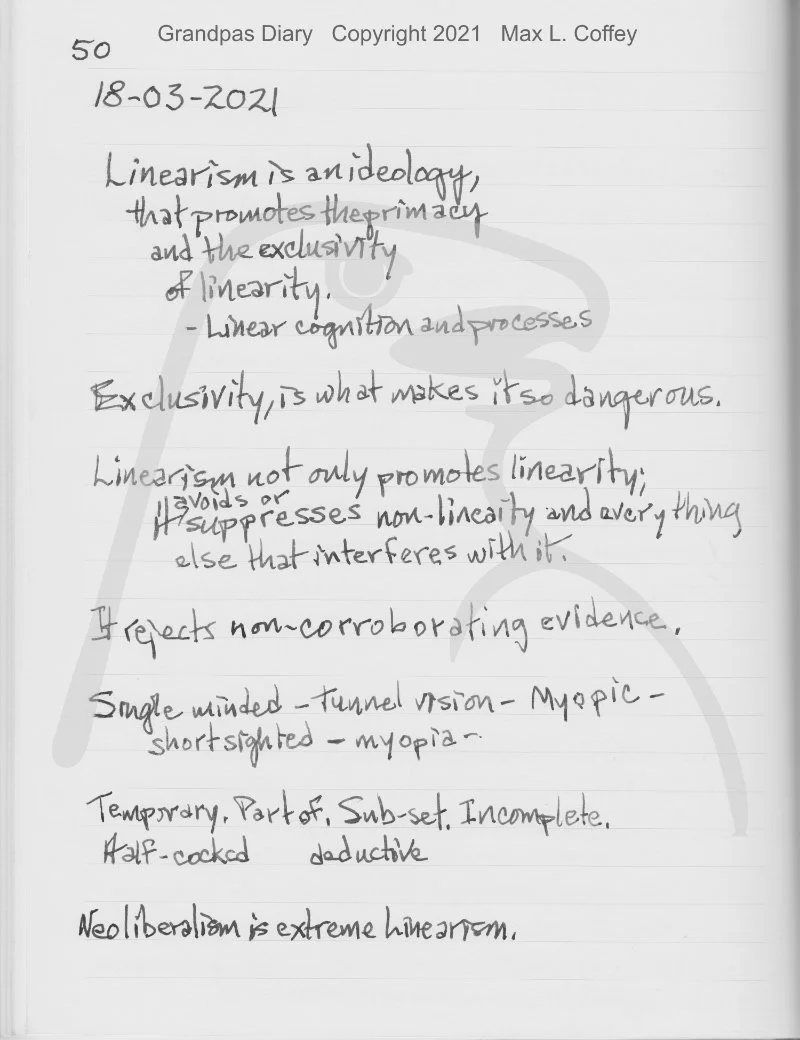 Grandpas Diary Copyright 2021 Max L. Coffey
50
18-03-2021
Linearism is an ideology,
that promotes the primacy
and the exclusivity
of linearity.
- Linear cognition and processes
Exclusivity, is what makes it so dangerous.
Linearism not only promotes linearity;
avoids or
It suppresses non-lineaity and everything
else that interferes with it.
It rejects non-corroborating evidence.
Single minded - tunnel vision - Myopic -
shortsighted - myopia -
Temporary. Part of. Sub-set. Incomplete.
Half-cocked deductive
Neoliberalism is extreme linearism.